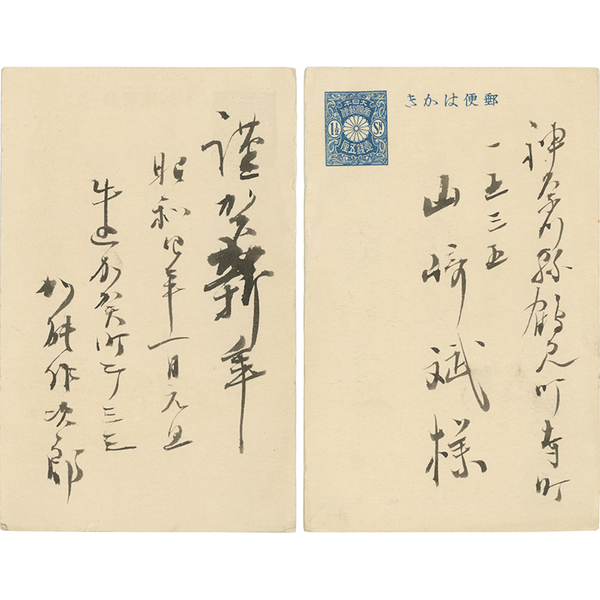 謹賀新年
昭和四年一月元旦
牛込加賀町二ノ三
加能作次郎
郵便はかき
大日本
帝國郵便
壹錢五厘
1½ Sn
神奈川縣鶴見町 町
一五三五
山崎斌様